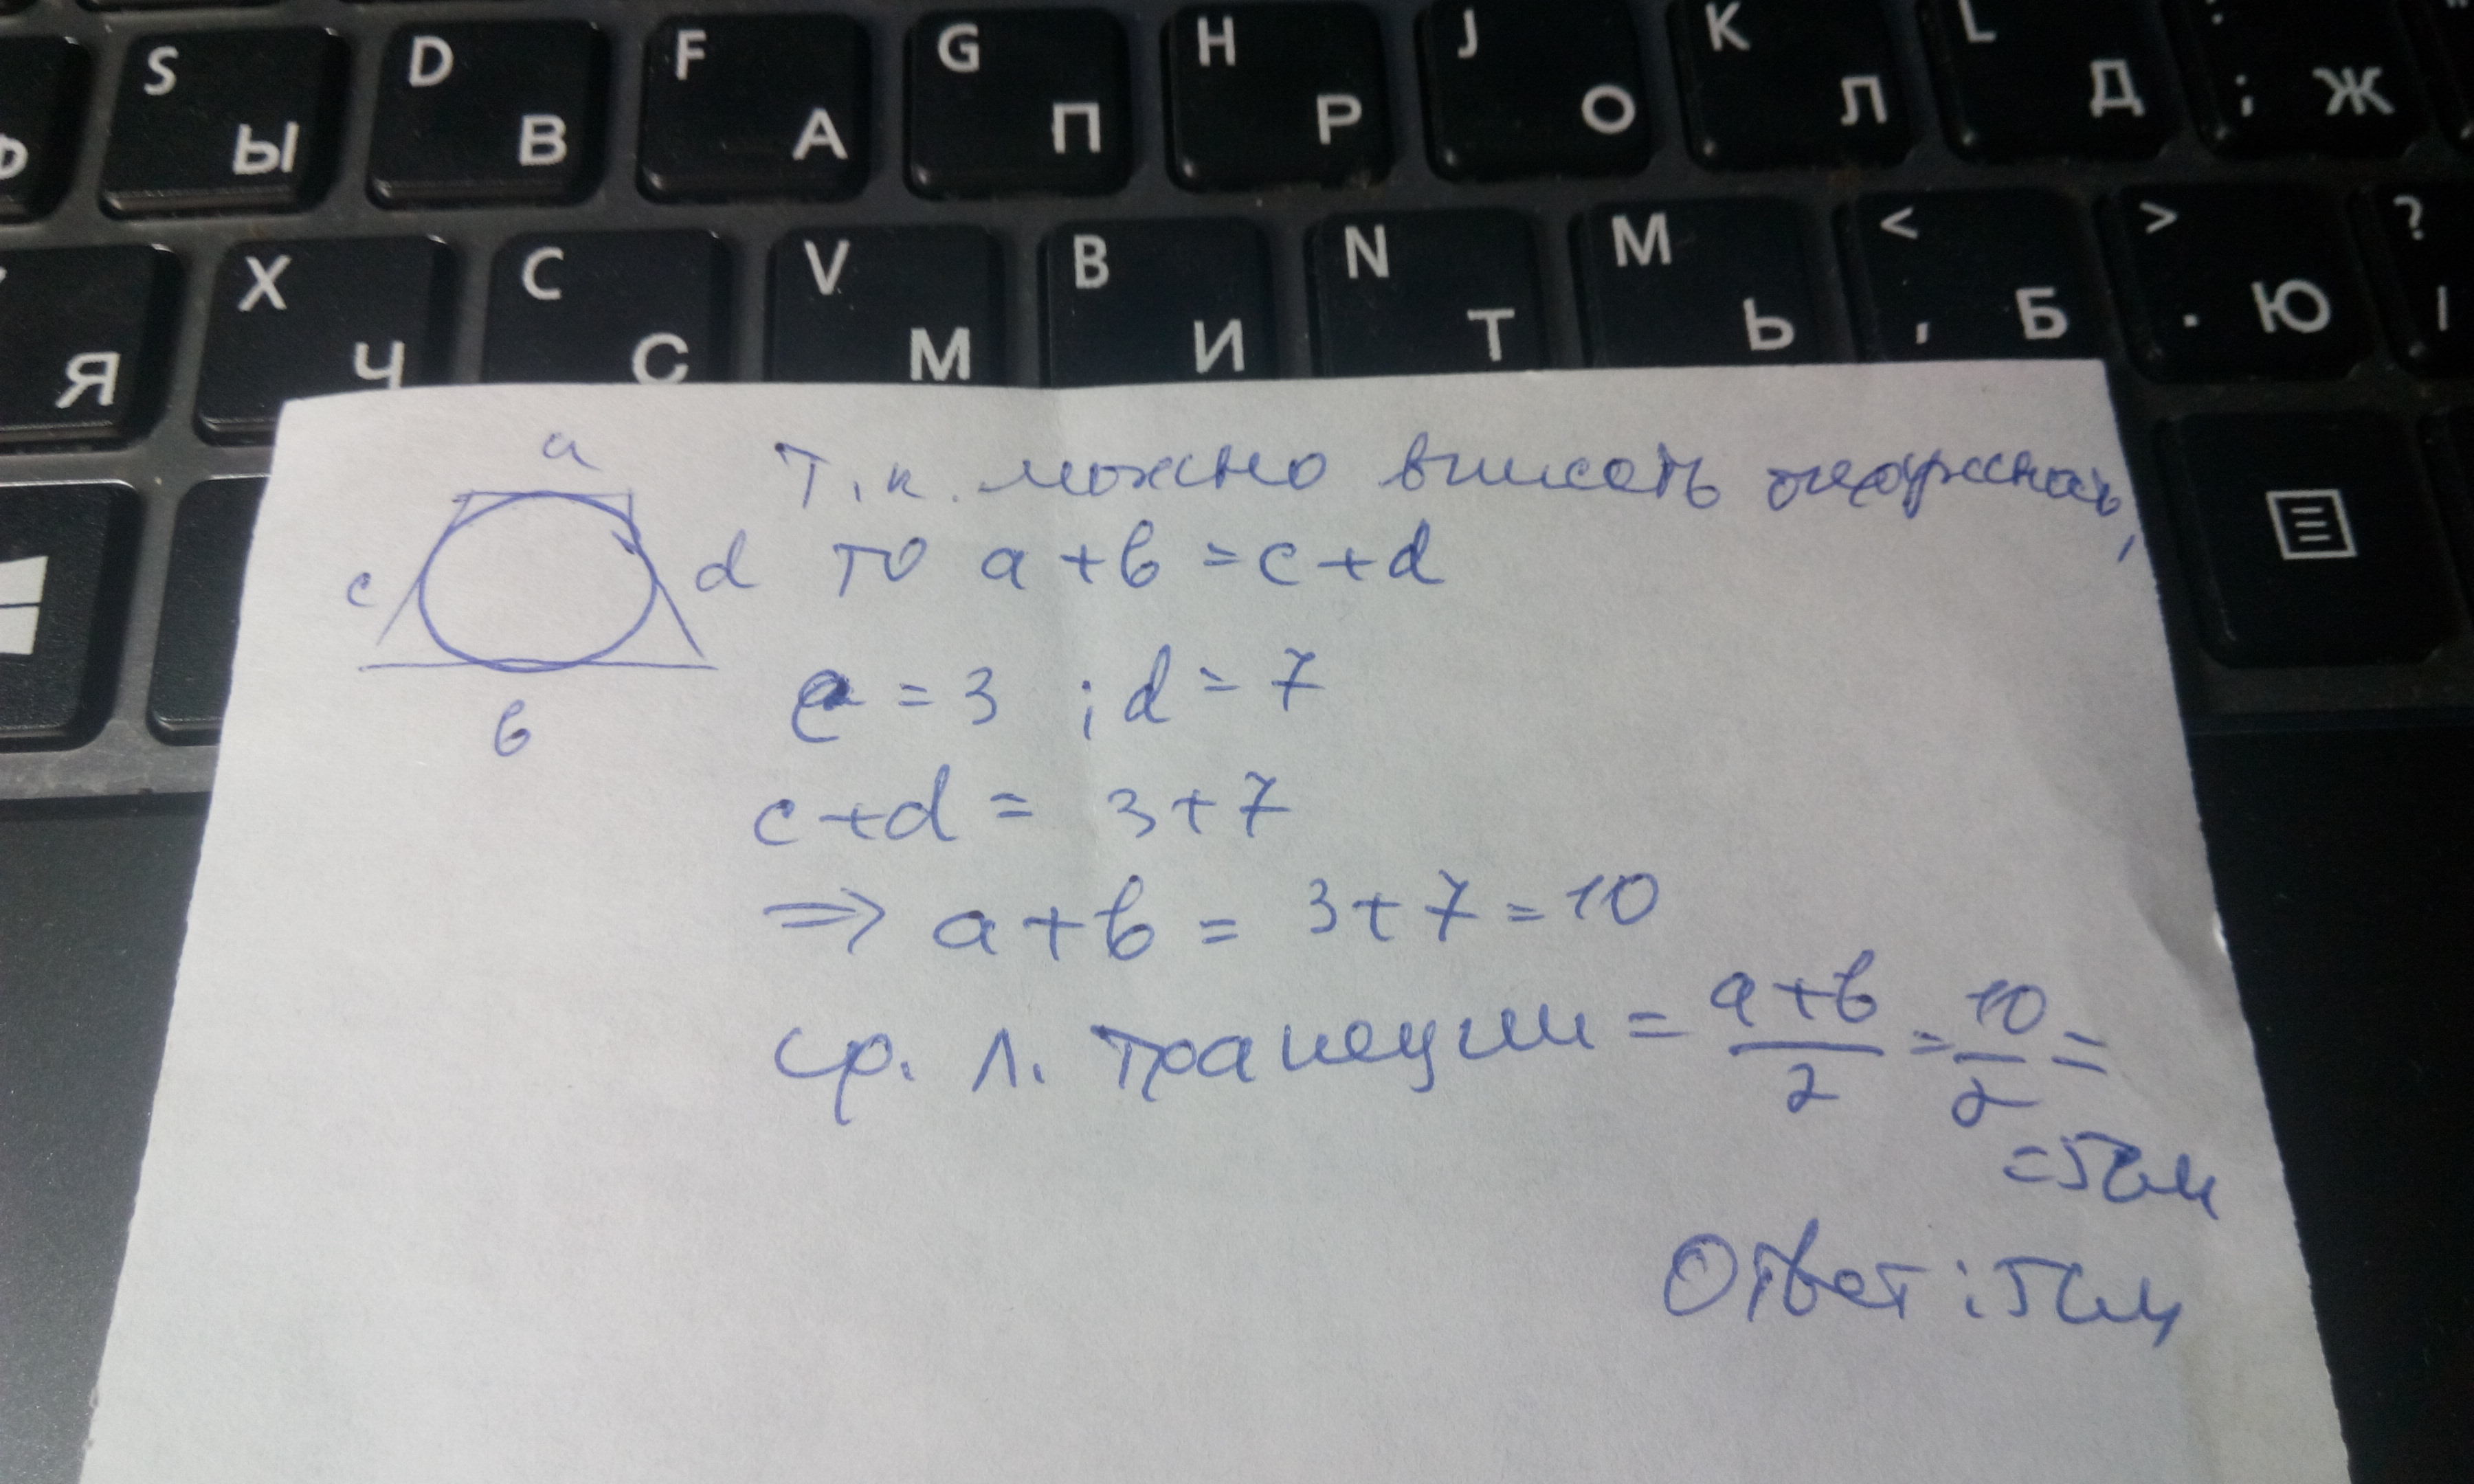 S Ы D В F А G П H Р J О K Л L Д : ; Ж
Я X Ч C С V М B И N Т M Ь < , Б > . Ю ? /
a
c
d
в
Т.к. можно вписать окружность,
то a + в = c + d
c = 3 ; d = 7
c + d = 3 + 7
⇒ a + в = 3 + 7 = 10
ср. л. трапеции = a + в / 2 = 10 / 2 =
= 5 см
Ответ: 5 см